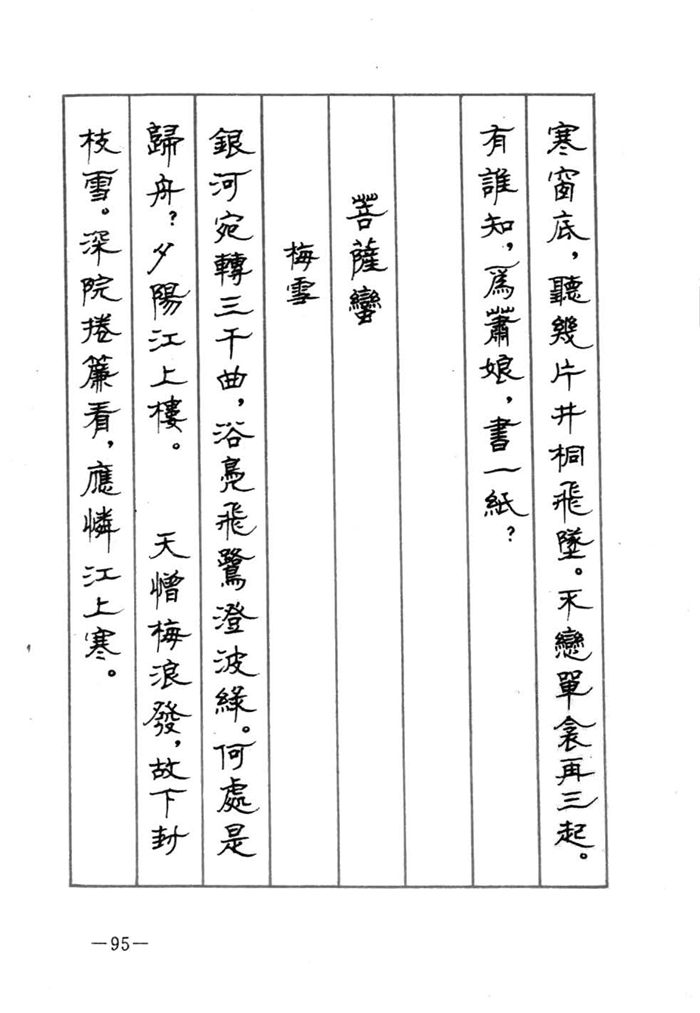 寒窗底，聽幾片井桐飛墜。不戀單衾再三起。
有誰知，為蕭娘，書一紙？
菩薩蠻
梅雪
銀河宛轉三千曲，浴鳧飛鷺澄波綠。何處是
歸舟？夕陽江上樓。　天憎梅浪發，故下封
枝雪。深院捲簾看，應憐江上寒。
—95—